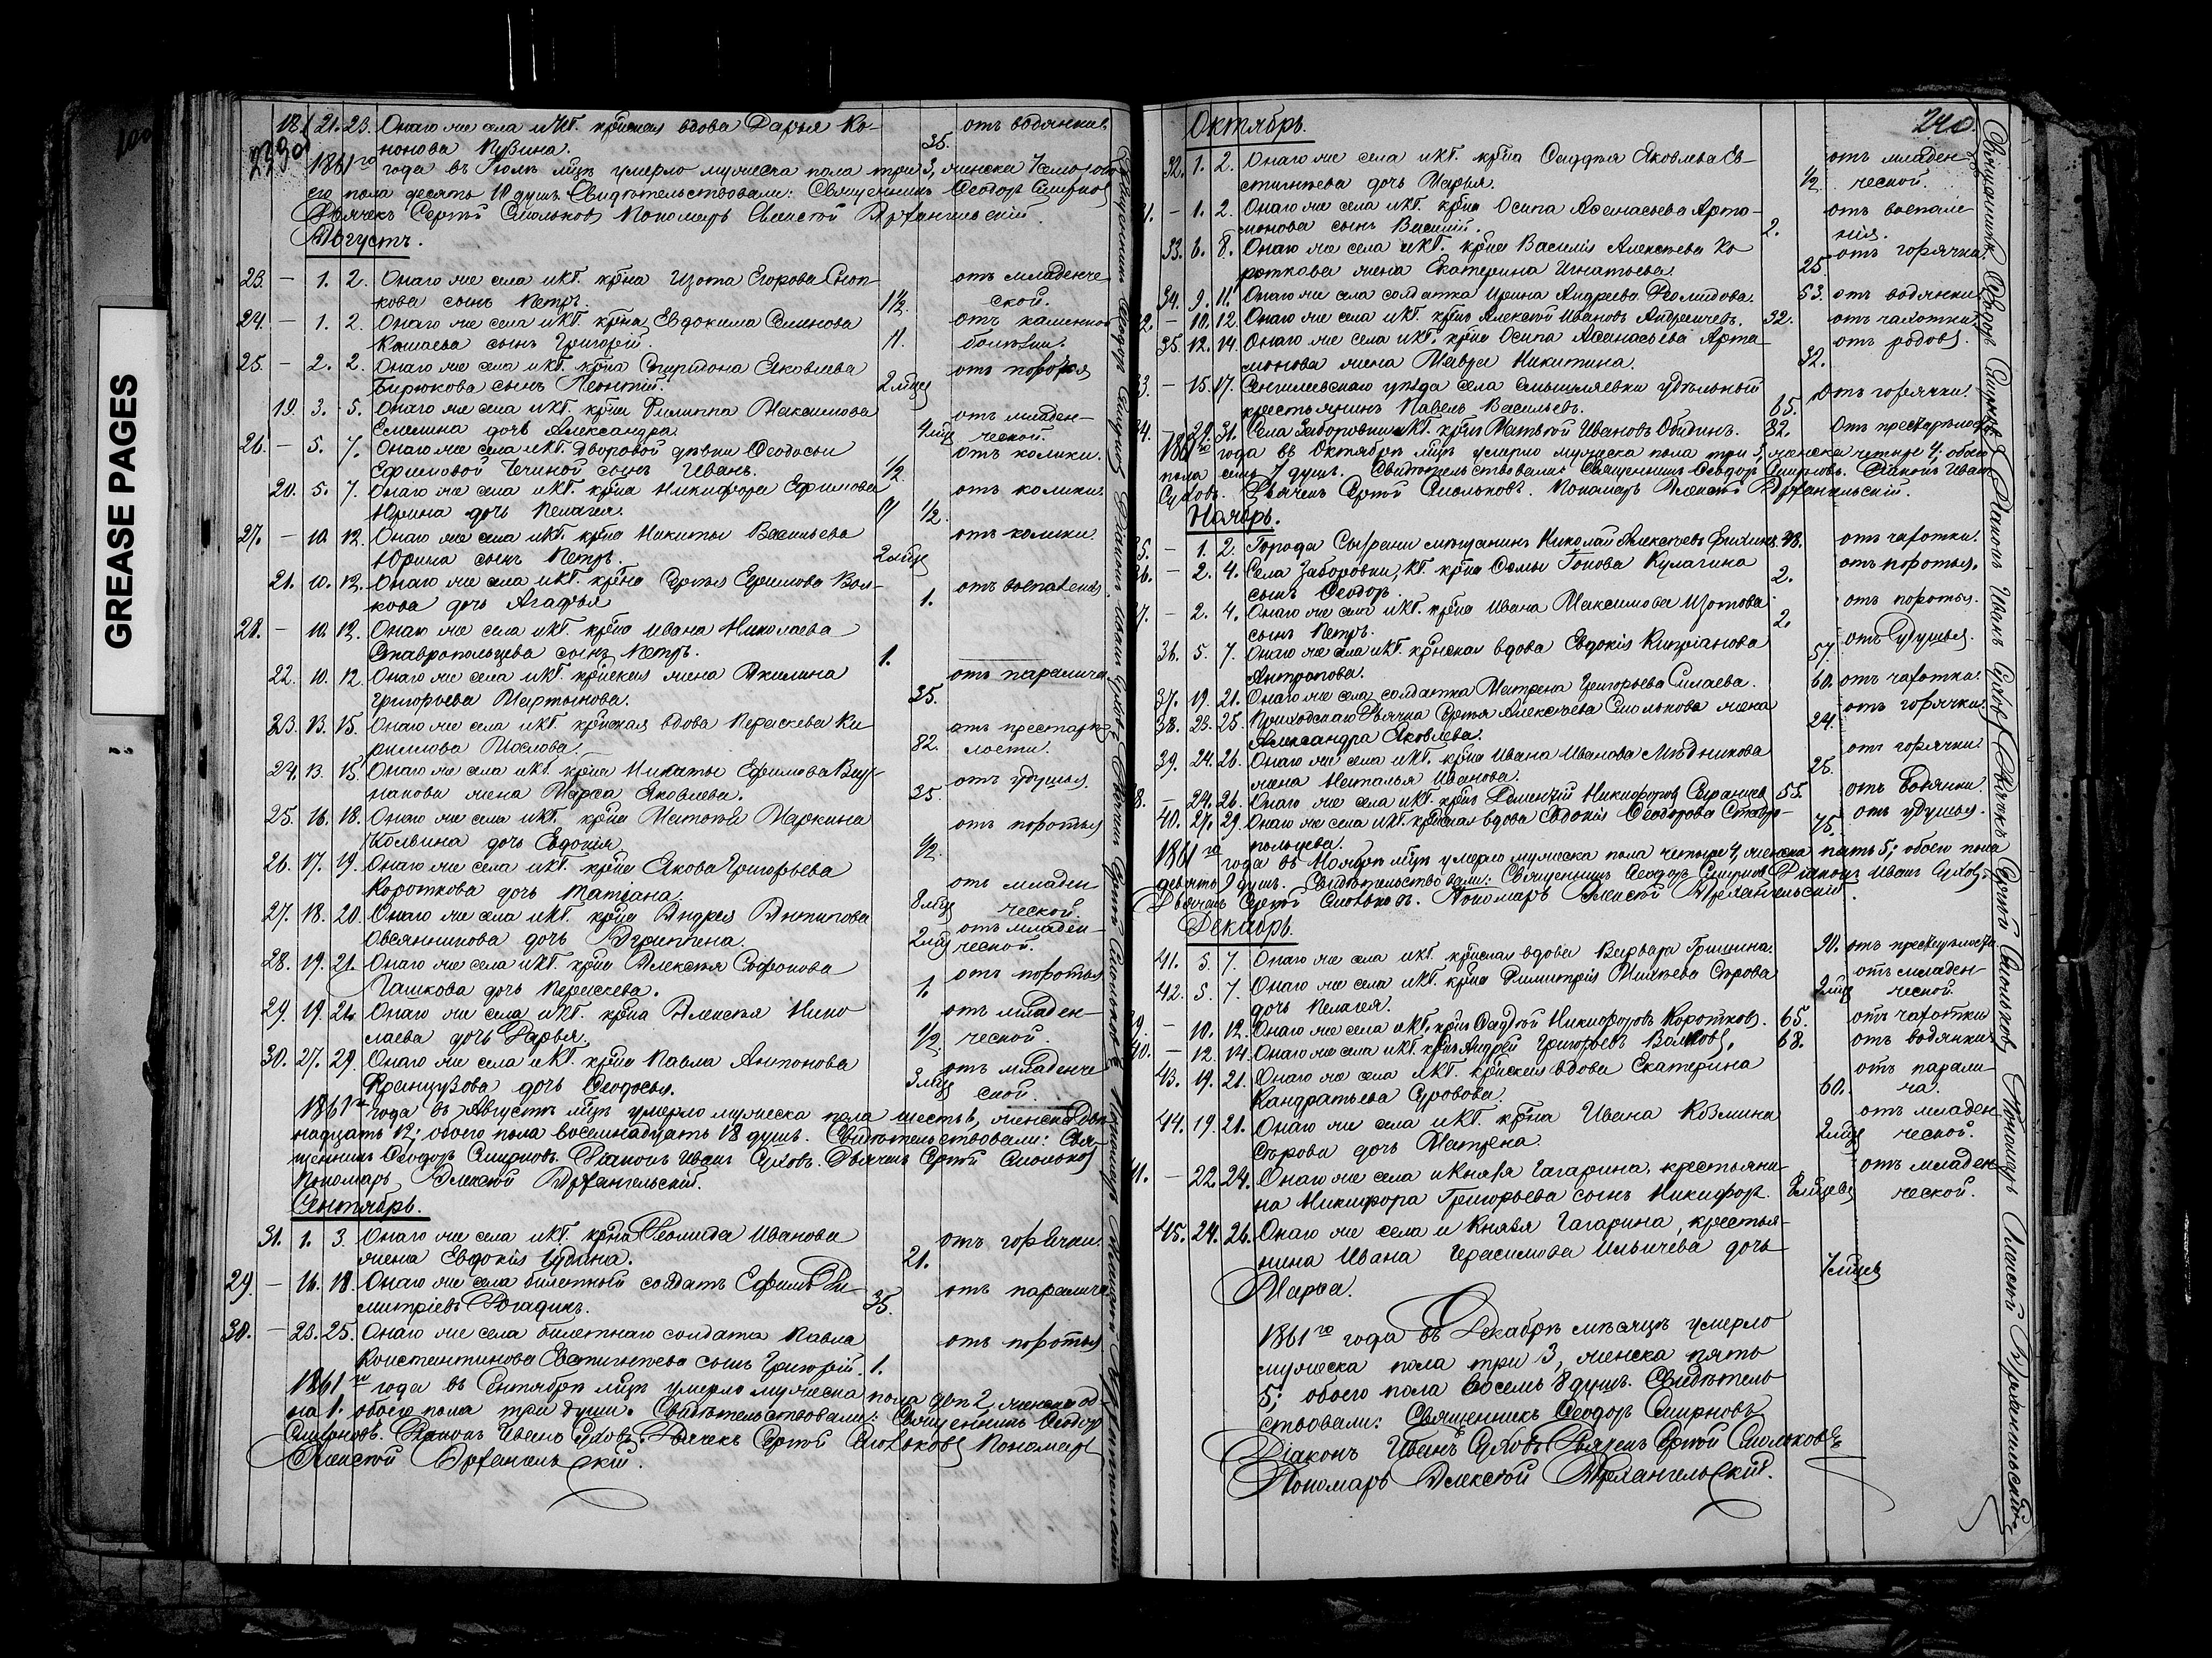 GREASE PAGES
239
18. 21. 23. Онаго же села и КГ. крѣнская вдова Дарья Ко-
нонова Пузина. 35. отъ водянки.
1861го года въ Іюлѣ мцѣ умерло мужеска пола три 3, женска 7 обо-
его пола десять 10 душъ. Свидѣтельствовали: Священникъ Ѳеодоръ Смирновъ
Дьячекъ Сергѣй Смольковъ Пономарь Алексѣй Архангельскій.
Августъ.
23. — 1. 2. Онаго же села и КГ. крѣна Изота Егорова
кова сынъ Петръ. 1 1/2. отъ младенче-
ской.
24. — 1. 2. Онаго же села и КГ. крѣна Евдокима Семенова
Кашаева сынъ Григорій. 11. отъ каменной
болѣзни.
25. — 2. 2. Онаго же села и КГ. крѣна Спиридона Яковлева
Бирюкова сынъ Леонтій. 2 мцев отъ поноса
19. 3. 5. Онаго же села и КГ. крѣна Филиппа Максимова
Емелина дочь Александра. 4 мцев отъ младен-
ческой.
26. — 5. 7. Онаго же села и КГ. дворовой дѣвки Ѳеодосьи
Ефимовой сынъ Иванъ. 1/2 отъ колики.
20. 5. 7. Онаго же села и КГ. крѣна Никифора Ефимова
Юрина дочь Пелагея. 1/2. отъ колики.
27. — 10. 12. Онаго же села и КГ. крѣна Никиты Васильева
Юрина сынъ Петръ. 2 мцев отъ колики.
21. 10. 12. Онаго же села и КГ. крѣна Сергѣя Ефимова Вол-
кова дочь Агафья 1. отъ воспаленія
28. — 10. 12. Онаго же села и КГ. крѣна Ивана Николаева
Ставропольцева сынъ Петръ. 1.
22. 10. 12. Онаго же села и КГ. крѣнская жена Акилина
Григорьева Мартынова. 35. отъ паралича
23. 13. 15. Онаго же села и КГ. крѣнская вдова Параскева Ки-
рилова 82. отъ престарѣ-
лости.
24. 13. 15. Онаго же села и КГ. крѣна Никиты Ефимова
накова жена Марѳа Яковлева. 35. отъ удушья.
25. 16. 18. Онаго же села и КГ. крѣна Матвѣя Маркина
дочь Евдокія 1/2. отъ поноса
26. 17. 19. Онаго же села и КГ. крѣна Якова Григорьева
Короткова дочь Матіана. 8 мцев отъ младен-
ческой.
27. 18. 20. Онаго же села и КГ. крѣна Андрея Антипова
Овсянникова дочь Агрипена. 2 мцев отъ младен-
ческой.
28. 19. 21. Онаго же села и КГ. крѣна Алексѣя Софонова
Гашкова дочь Параскева. 1. отъ поноса
29. 19. 21. Онаго же села и КГ. крѣна Алексѣя Нико-
лаева дочь Дарья. 1/2 отъ младен-
ческой.
30. 27. 29. Онаго же села и КГ. крѣна Павла Антонова
Французова дочь Ѳеодосья. 3 мцев отъ младенче-
ской.
1861го года въ Августѣ мцѣ умерло мужеска пола шесть 6, женска двѣ-
надцать 12; обоего пола восемнадцать 18 душъ. Свидѣтельствовали: Свя-
щенникъ Ѳеодоръ Смирновъ. Діаконъ Иванъ Суховъ. Дьячекъ Сергѣй Смольковъ
Пономарь Алексѣй Архангельскій.
Сентябрь.
31. 1. 3. Онаго же села и КГ. крѣна Леонида Иванова
жена Евдокія 21. отъ горячки.
29. — 16. 18. Онаго же села билетный солдатъ Ефимъ Ди-
митріевъ Рогадинъ. 35. отъ паралича
30. — 23. 25. Онаго же села билетнаго солдата Павла
Константинова Евстигнѣева сынъ Григорій. 1. отъ поноса
1861го года въ Сентябрѣ мцѣ умерло мужеска пола два 2, женска од-
на 1; обоего пола три души. Свидѣтельствовали: Священникъ Ѳеодоръ
Смирновъ. Діаконъ Иванъ Суховъ. Дьячекъ Сергѣй Смольковъ Пономарь
Алексѣй Архангельскій.
240.
Октябрь.
32. 1. 2. Онаго же села и КГ. крѣна Ѳаддея Яковлева Ев-
стигнѣева дочь Марья. 1/2. отъ младен-
ческой.
31. — 1. 2. Онаго же села и КГ. крѣна Осипа Аѳанасьева Арта-
монова сынъ Василій. 2. отъ воспале-
нія.
33. 6. 8. Онаго же села и КГ. крѣна Василія Алексѣева Ко-
роткова жена Екатерина Игнатьева. 25 отъ горячки.
34. 9. 11. Онаго же села солдатка Ирина Андреева 53. отъ водянки.
32. — 10. 12. Онаго же села и КГ. крѣнъ Алексѣй Ивановъ 32. отъ чахотки.
35. 12. 14. Онаго же села и КГ. крѣна Осипа Аѳанасьева Арта-
монова жена Мавра Никитина. 32. отъ родовъ.
33. — 15. 17. Сенгилеевскаго уѣзда села Смышляевки удѣльный
крестьянинъ Павелъ Васильевъ. 65. отъ горячки.
34. — 29. 31. Села Заборовки КГ. крѣнъ Матвѣй Ивановъ Обидинъ. 82. отъ престарѣлости
1861го года въ Октябрѣ мцѣ умерло мужеска пола три 3, женска четыре 4; обоего
пола семь 7 душъ. Свидѣтельствовали: Священникъ Ѳеодоръ Смирновъ. Діаконъ Иванъ
Суховъ. Дьячекъ Сергѣй Смольковъ. Пономарь Алексѣй Архангельскій.
Ноябрь.
35. — 1. 2. Города Сызрани мѣщанинъ Николай Алексѣевъ 38. отъ чахотки.
36. — 2. 4. Села Заборовки, КГ. крѣна Ѳомы Іонова Кулагина
сынъ Ѳеодоръ. 2. отъ поноса.
37. — 2. 4. Онаго же села и КГ. крѣна Ивана Максимова Изотова
сынъ Петръ. 2. отъ поноса.
36. 5. 7. Онаго же села и КГ. крѣнская вдова Евдокія Кипріанова
Антропова. 57. отъ удушья.
37. 19. 21. Онаго же села солдатка Матрена Григорьева Силаева. 60. отъ чахотки.
38. 23. 25. Приходскаго Дьячка Сергѣя Алексѣева Смолькова жена
Александра Яковлева. 24. отъ горячки.
39. 24. 26. Онаго же села и КГ. крѣна Ивана Иванова Мѣдникова
жена Наталья Иванова. 25. отъ горячки.
38. — 24. 26. Онаго же села и КГ. крѣнъ Дементій Никифоровъ 55. отъ водянки.
40. 27. 29. Онаго же села и КГ. крѣнская вдова Евдокія Ѳеодорова Ставро-
польцева. 75. отъ удушья.
1861го года въ Ноябрѣ мцѣ умерло мужеска пола четыре 4, женска пять 5; обоего пола
девять 9 душъ. Свидѣтельствовали: Священникъ Ѳеодоръ Смирновъ Діаконъ Иванъ Суховъ.
Дьячекъ Сергѣй Смольковъ. Пономарь Алексѣй Архангельскій.
Декабрь.
41. 5. 7. Онаго же села и КГ. крѣнская вдова Варвара Гришина. 90. отъ престарѣлости
42. 5. 7. Онаго же села и КГ. крѣна Димитрія Михѣева Сѣрова
дочь Пелагея. 2 мцев отъ младен-
ческой.
39. — 10. 12. Онаго же села и КГ. крѣнъ Ѳаддей Никифоровъ Коротковъ. 65. отъ чахотки
40. — 12. 14. Онаго же села и КГ. крѣнъ Андрей Григорьевъ Волковъ. 68. отъ водянки
43. 19. 21. Онаго же села и КГ. крѣнская вдова Екатерина
Кандратьева Суровова. 60. отъ парали-
ча.
44. 19. 21. Онаго же села и КГ. крѣна Ивана Козмина
Сѣрова дочь Матрена 2 мцев отъ младен-
ческой.
41. — 22. 24. Онаго же села и Князя Гагарина, крестьяни-
на Никифора Григорьева сынъ Никифоръ. отъ младен-
ческой.
45. 24. 26. Онаго же села и Князя Гагарина, крестья-
нина Ивана Герасимова Ильичева дочь
Марѳа. 7 мцев
1861го года въ Декабрѣ мѣсяцѣ умерло
мужеска пола три 3, женска пять
5; обоего пола восемь 8 душъ. Свидѣтель-
ствовали: Священникъ Ѳеодоръ Смирновъ
Діаконъ Иванъ Суховъ Дьячекъ Сергѣй Смольковъ
Пономарь Алексѣй Архангельскій.
Священникъ Ѳеодоръ Смирновъ Діаконъ Иванъ Суховъ Дьячекъ Сергѣй Смольковъ Пономарь Алексѣй Архангельскій